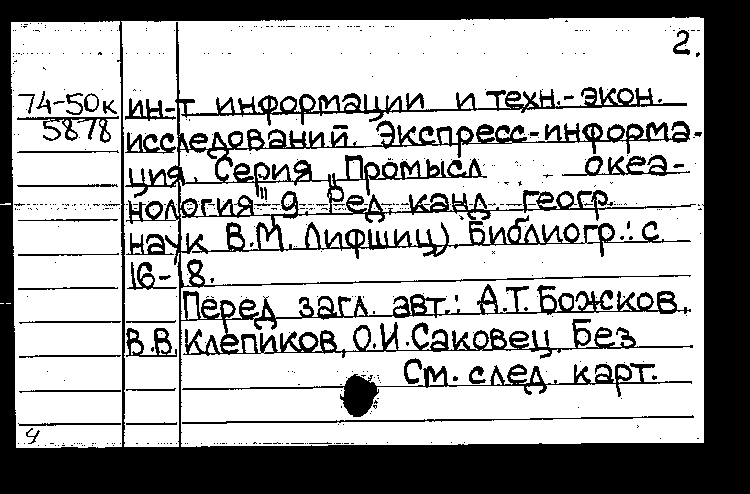 2.
74-50к ин-т информации и техн.-экон.
5878 исследований. Экспресс-информа-
ция. Серия „Промысл океа-
нология", 9. Ред. канд. геогр.
наук В.М. Лифшиц). Библиогр.: с.
16-18.
Перед загл. авт.: А.Т. Божков,
В.В. Клепиков, О.И. Саковец. Без
См. след. карт.
4